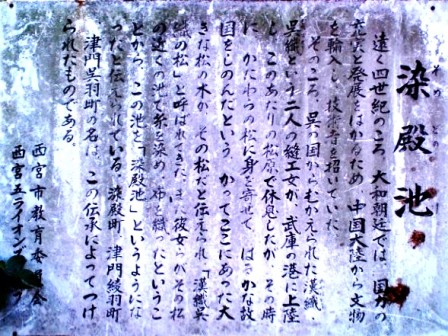 染殿池
遠く四世紀のころ、大和朝廷では、国力の
充実と発展をはかるため、中国大陸から文物
を輸入し、技術者を招いていた。
そのころ、呉の国からむかえられた漢織・
呉織という二人の縫工女が、武庫の港に上陸
し、このあたりの松原で休息したが、その時
に、かたわらの松に身を寄せて、はるかな故
国をしのんだという。かつてここにあった大
きな松の木が、その松だと伝えられ、「漢織呉
織の松」と呼ばれてきた。また、彼女らがその松
の近くの池で糸を染め、布を織ったというこ
とから、この池を「染殿池」というようにな
ったと伝えられている。染殿町、津門綾羽町
津門呉羽町の名は、この伝承によってつけ
られたものである。
西宮市教育委員会
西宮五ライオンズクラブ